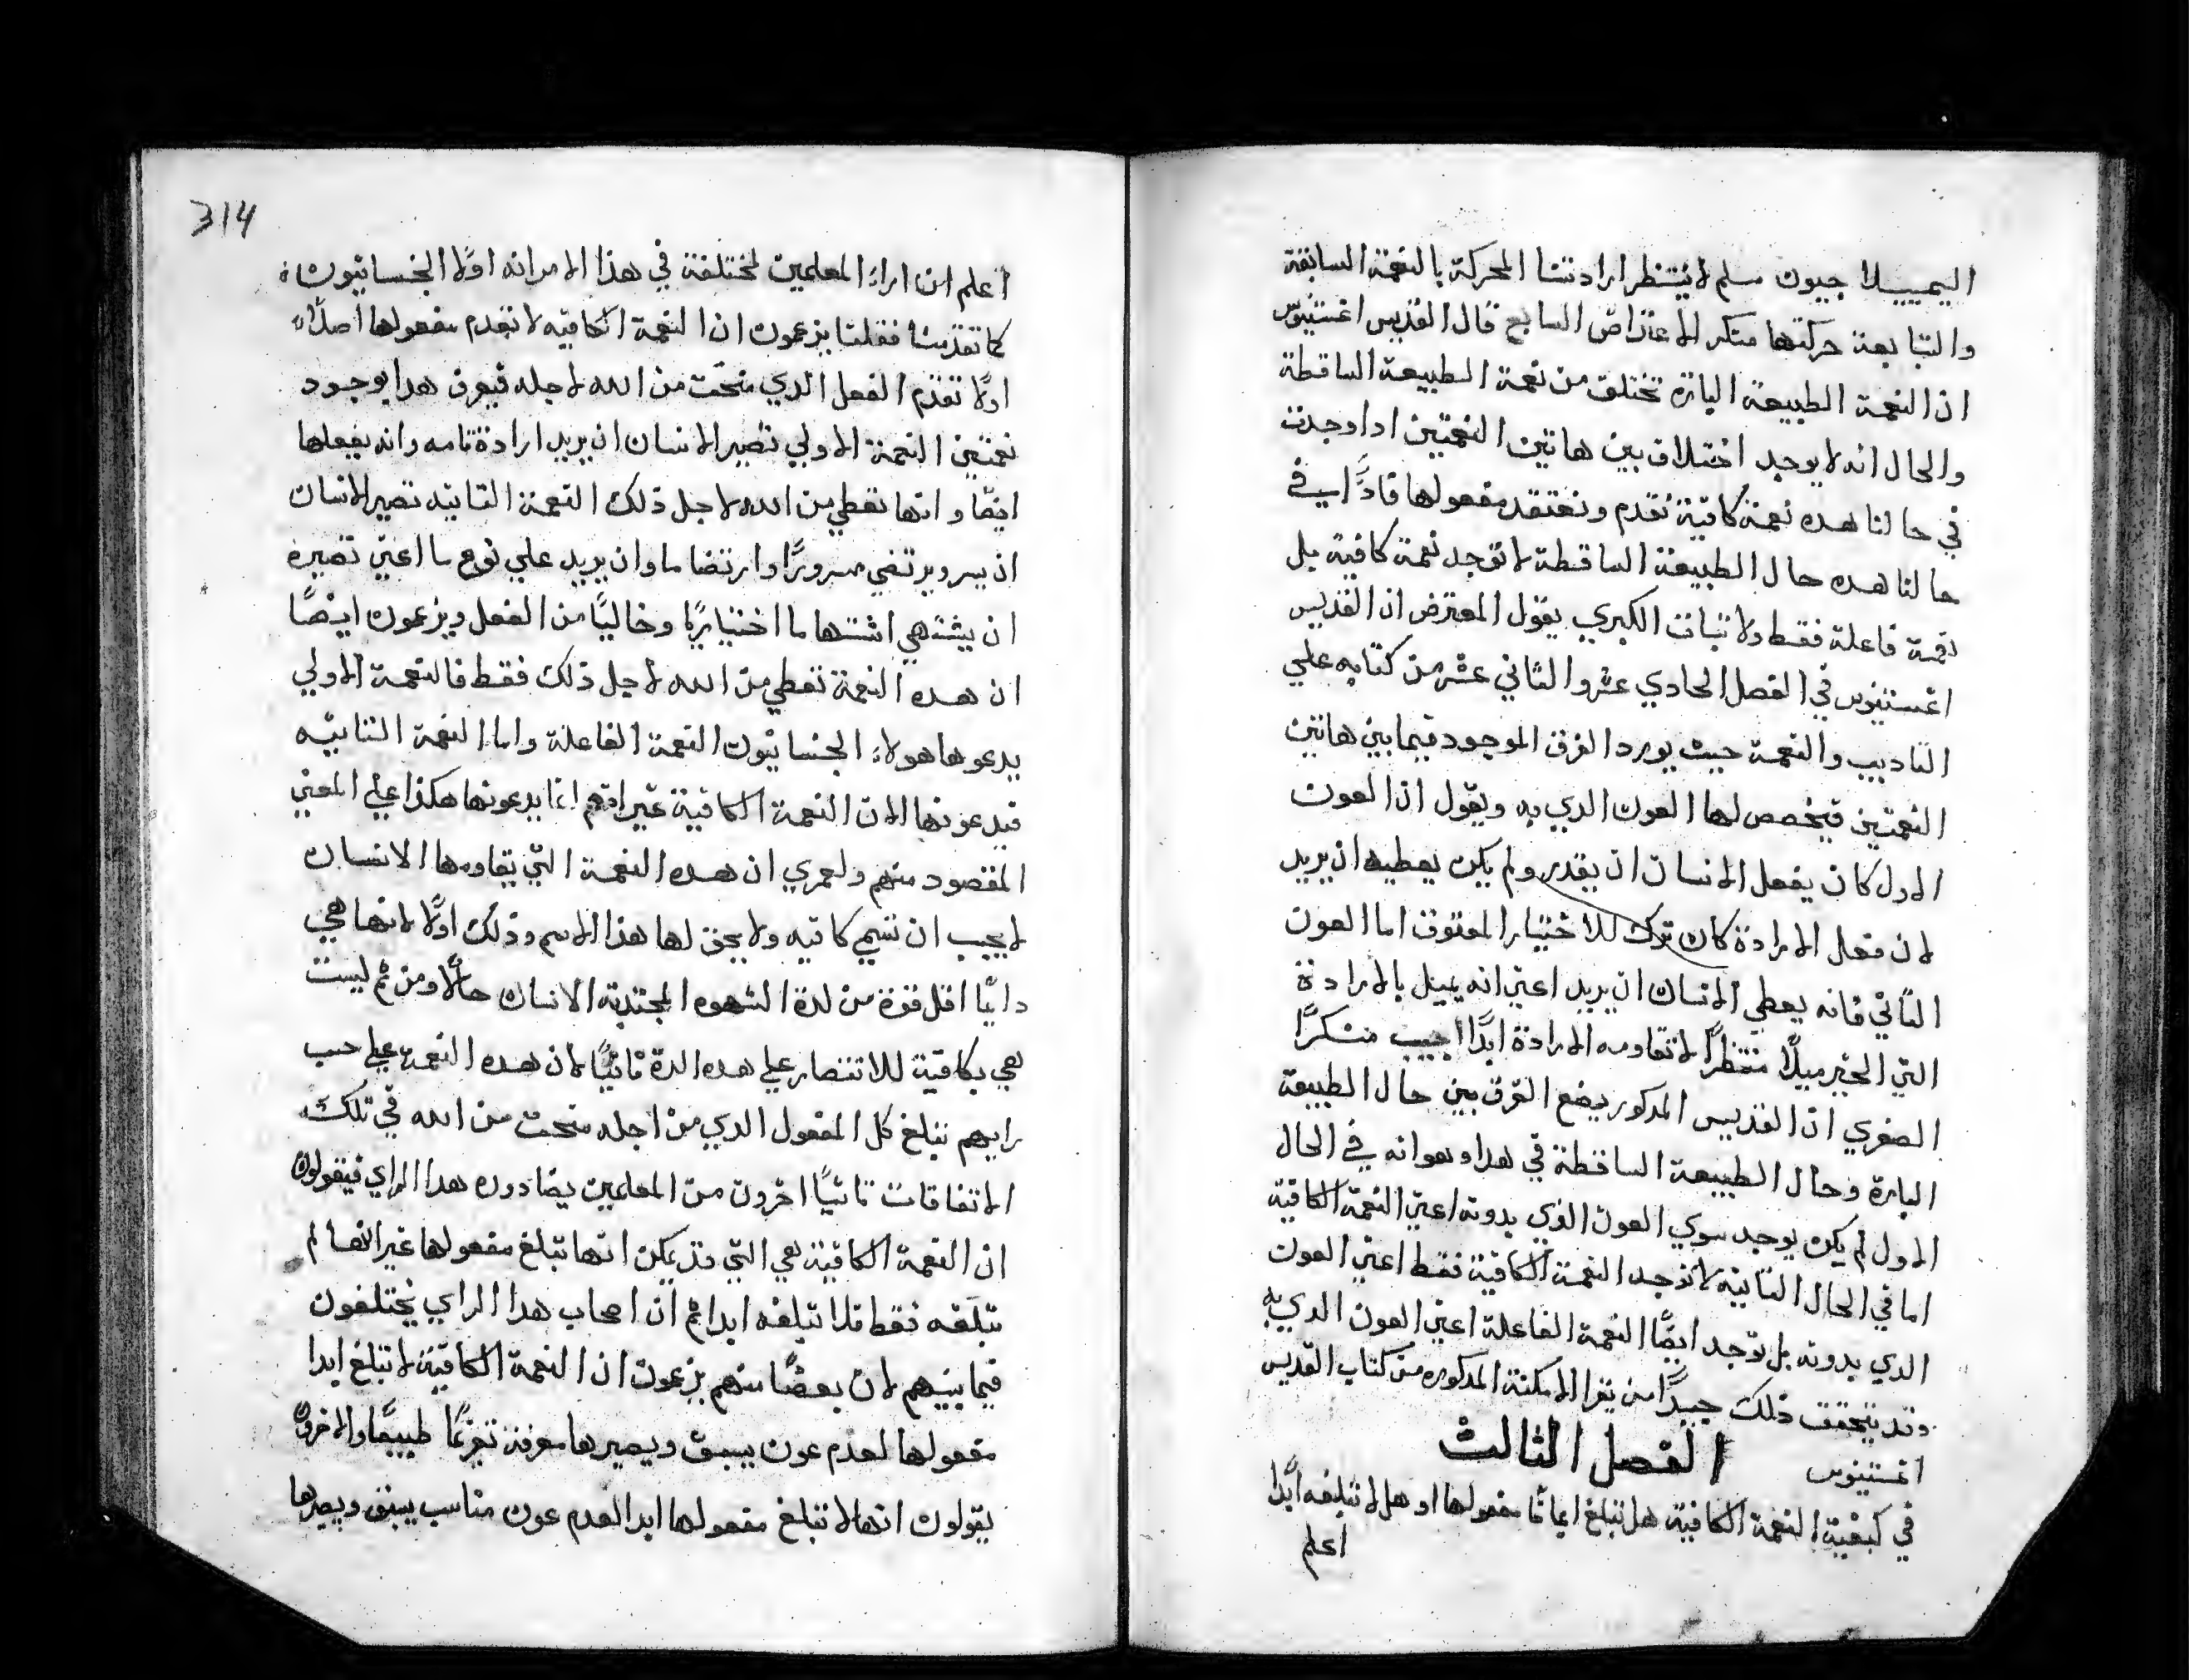 اليمييلاجيون مسلم لا يُنتظر ارادتنا المحركة بالنعمة السابقة
والتابعة حركتها منكر الاعتراض السابع قال القديس اغستينوس
ان النعمة الطبيعة البارة تختلف من نعمة الطبيعة الساقطة
والحال انه لا يوجد اختلاف بين هاتين النعمتين ادا وجدت
في حالنا هده نعمة كافية تقدم ونعتقد مفعولها فادًا ليس في
حالنا هده حال الطبيعة الساقطة لا توجد نعمة كافية بل
نعمة فاعلة فقط ولاتبات الكبري يقول المعترض ان القديس
اغستينوس في الفصل الحادي عشر والتاني عشر من كتابه علي
التاديب والنعمة حيث يورد الفرق الموجود فيما بين هاتين
النعمتين فيخصص لها العون الدي به ويقول ان العون
الاول كان يفعل الانسان ان يقدر ولم يكن يعطيه ان يريد
لان فعل الارادة كان ترك للاختيار المعتوق اما العون
التاني فانه يعطي الانسان ان يريد اعني انه يميل بالارادة
التي الخير ميلًا منتظرًا لا تقاومه الارادة ابدًا اجيب منكرًا
الصغري ان القديس المدكور يضع الفرق بين حال الطبيعة
البارة وحال الطبيعة الساقطة في هدا وهو انه في الحال
الاول لم يكن يوجد سوي العون الذي بدونه اعني النعمة الكافية
اما في الحال التانية لا توجد النعمة الكافية فقط اعني العون
الدي بدونه بل توجد ايضًا النعمة الفاعلة اعني العون الدي به
وقد يتحقق ذلك جيدًا من يقرا الامكنة المدكوره من كتاب القديس
اغستينوس
الفصل الثالث
في كيفية النعمة الكافية هل تبلغ احيانًا مفعولها او هل لا تبلغه ابدًا
اعلم
314
اعلم ان اراء المعلمين مختلفة في هذا الامر انه اولًا الجنسانيون
كما تقدمنا فقلنا يزعمون ان النعمة الكافيه لا تقدم مفعولها اصلًا
اولًا تقدم الفعل الدي منحت من الله لاجله فيورف هدا بوجود
نعمتين النعمة الاولي تصير الانسان ان يريد ارادة تامه وانه يفعلها
ايضًا وانها تعطي من الله لاجل ذلك النعمة التانيه تصير الانسان
ان يسر ويرتضي سرورًا وارتضا ما وان يريد علي نوع ما اعني تصيره
ان يشتهي اشتها ما اختياريًا وخاليًا من الفعل ويزعمون ايضًا
ان هده النعمة تعطي من الله لاجل ذلك فقط فالنعمة الاولي
يدعوها هولاء الجنسانيون النعمة الفاعلة واما النعمة التانيه
فيدعونها الان النعمة الكافية غير انهم انما يدعونها هكذا علي المعني
المقصود منهم ولعمري ان هده النعمة التي يقاومها الانسان
لا يجب ان تسمي كافيه ولا يحق لها هذا الاسم وذلك اولًا لانها هي
دايمًا اقل قوة من لدة الشهوه المجتدبة الانسان حالًا ومن ثم ليست
هي بكافية للانتصار علي هده الدة تانيًا لان هده النعمة علي حسب
رايهم تبلغ كل المفعول الدي من اجله منحت من الله في تلك
الاتفاقات تانيًا اخرون من المعلمين يضادون هدا الراي فيقولون
ان النعمة الكافية هي التي قد يمكن انها تبلغ مفعولها غير انها لم
تبلغه فقط فلا تبلغه ابدا ثم ان اصحاب هدا الراي يختلفون
فيما بينهم لان بعضًا منهم يزعمون ان النعمة الكافية لا تبلغ ابدا
مفعولها لعدم عون يسبق ويصيرها معرفة تعريفًا طبيعيًا والاخرون
يقولون انها لا تبلغ مفعولها ابدا لعدم عون مناسب يسبق ويصيرها